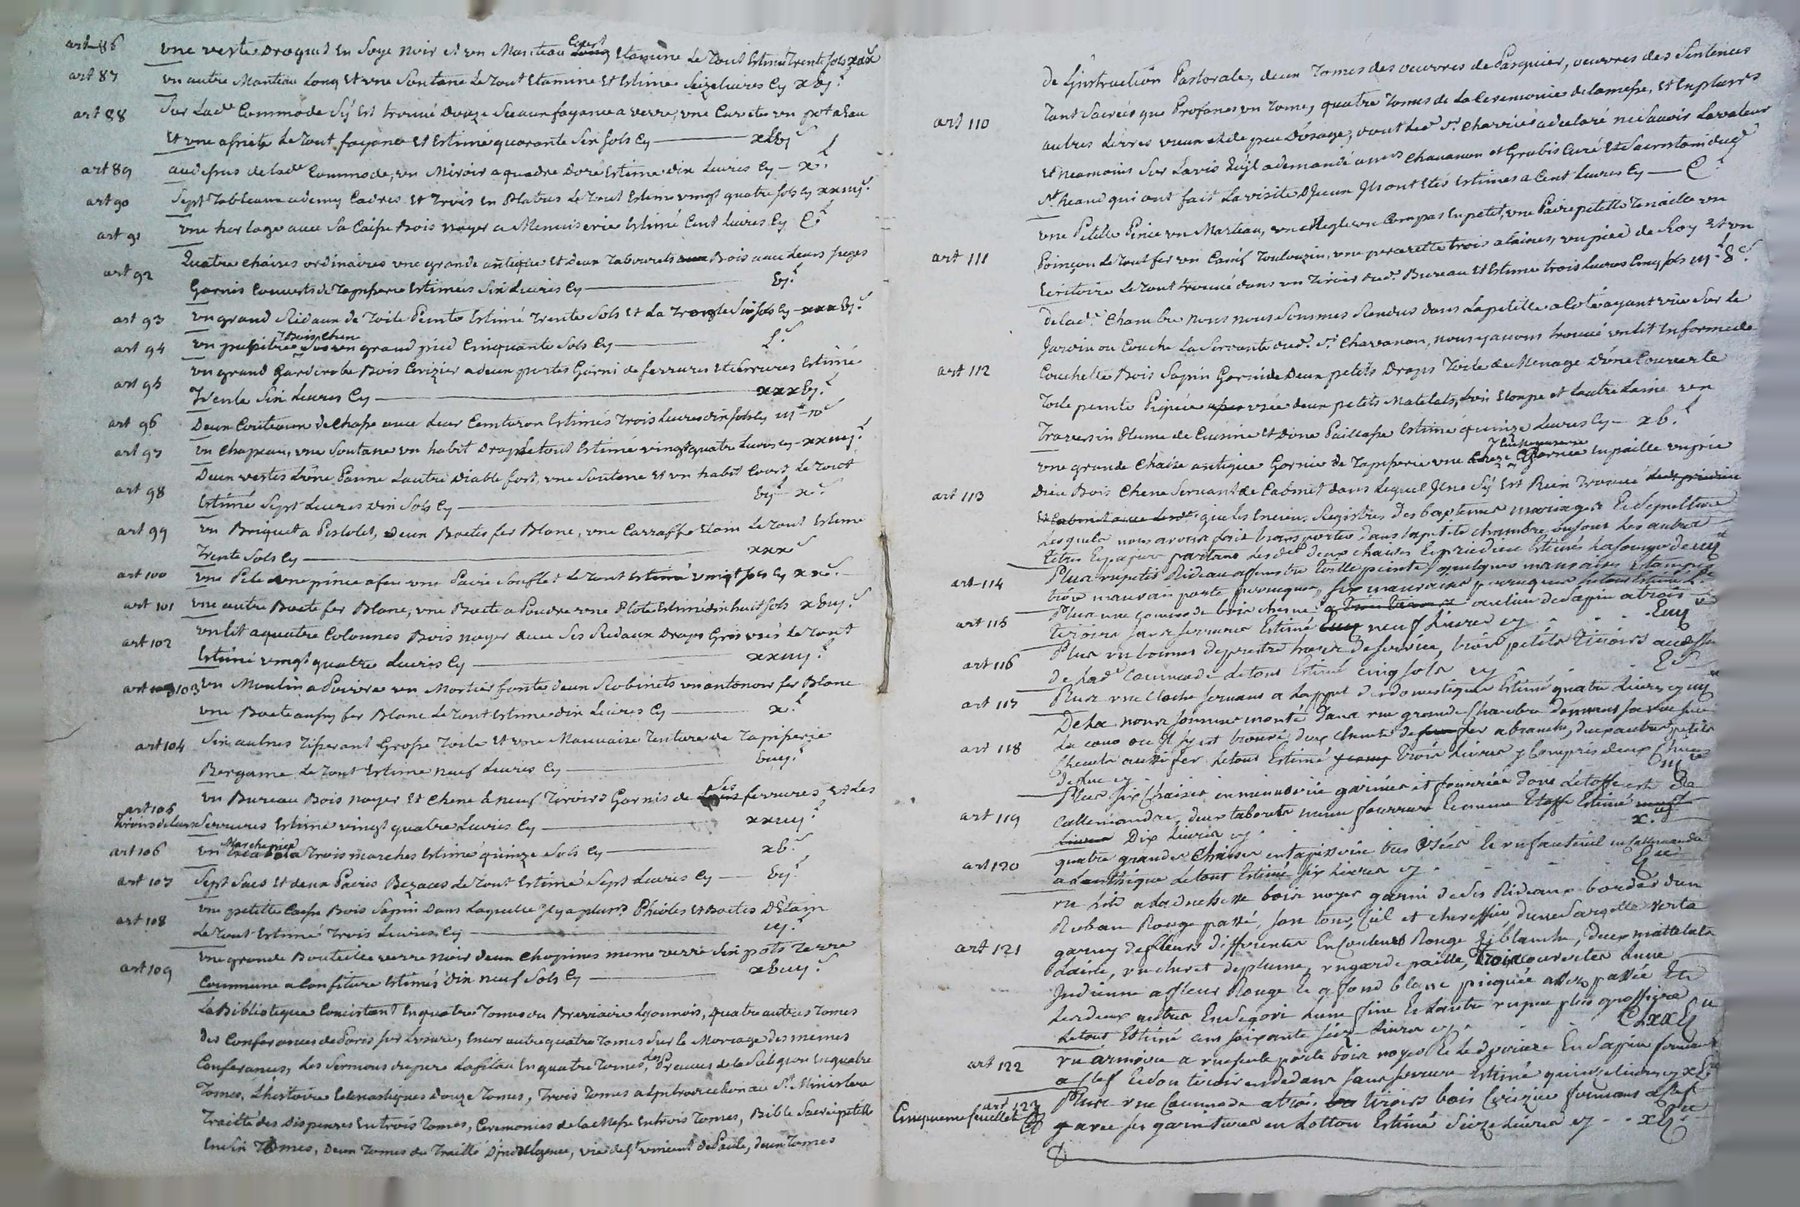 art 86 une veste Droguet en Soye noir et un Manteau Court Etamine Le Tout Estimé Trente sols xxx s
art 87 un autre Manteau Long et une Soutane Le Tout Etamine et Estimé Seize livres Cy xvj l
art 88 Sur Lad.e Commode S'y Est trouvé Douze Seaux fayance a verre, une Cuvette un pot a Eau
et une assiete Le Tout fayance et Estimé quarante Six sols Cy xlvj s
art 89 au dessus de lad.e Commode, un Miroir a quadre Doré Estimé dix Livres Cy x l
art 90 Sept Tableaux a demy Cadres et Trois en Platres Le Tout Estimé vingt quatre sols Cy xxiiij s
art 91 une horloge avec Sa Caisse Bois noyer a Menuiserie Estimé Cent Livres Cy C l
art 92 Quatre chaires ordinaires une grande antique et deux Tabourets Bois avec Leurs sieges
Garnis Couverts de Tapisserie Estimées Six Livres Cy vj l
art 93 un grand Rideau de Toile Peinte Estimé Trente Sols et La Tringle Six sols Cy xxxvj s
art 94 un pupitre Bois Chene Sur un grand pied Cinquante Sols Cy L s
art 95 un grand garderobe Bois Cerizier a deux portes Garni de ferrures et serrures Estimé
Trente Six Livres Cy xxxvj l
art 96 Deux Couteaux de Chasse avec Leur Ceinturon Estimés Trois Livres dix sols Cy iij l x s
art 97 un Chapeau, une Soutane un habit Drap Le tout Estimé vingt quatre Livres Cy xxiiij l
art 98 Deux vestes L'une Panne L'autre Diable fort, une Soutane et un habit Court Le Tout
Estimé Sept Livres dix Sols Cy vij l x s
art 99 un Briquet a Pistolet, Deux Boetes fer Blanc, une Carraffe Etain Le Tout Estimé
Trente Sols Cy xxx s
art 100 une Pele une pince a feu une Paire Soufflet Le Tout Estimé vingt sols Cy xx s
art 101 une autre Boete fer Blanc, une Boete a Poudre une Plote Estimé dix huit sols xviij s
art 102 un lit a quatre Colonnes Bois noyer avec Ses Rideaux Draps Gris usés Le Tout
Estimé vingt quatre Livres Cy xxiiij l
art 103 un Moulin a Poivre un Mortier fonte deux Robinets un antonoir fer Blanc
une Boete aussy fer Blanc Le Tout Estimé dix Livres Cy x l
art 104 Six autres Grosse Toile et une Mauvaise Tenture de Tapisserie
Bergame Le Tout Estimé neuf Livres Cy viiij l
art 105 un Bureau Bois noyer et Chene à neuf Tiroirs Garnis de Ses ferrures et des
Serrures Estimé vingt quatre Livres Cy xxiiij l
art 106 un Marchepied a Trois marches Estimé quinze Sols Cy xv s
art 107 Sept Sacs et deux Paires Bezaces Le Tout Estimé Sept Livres Cy vij l
art 108 une petite Caisse Bois Sapin Dans Laquelle Il y a plus.rs Phioles et Boetes D'Etain
Le Tout Estimé Trois Livres Cy iij l
art 109 une grande Bouteille verre noir deux Chopines meme verre Six pots Terre
Commune a Confiture Estimés dix neuf Sols Cy
La Biblioteque Consistant En quatre Tomes du Breviaire Lyonnois, quatre autres Tomes
des Conferances de Paris sur L'usure, Encor autre quatre Tomes Sur Le Mariage des memes
Conferances, Les Sermons du pere Lafitau En quatre Tomes, Les Preuves de la Religion En quatre
Tomes, L'histoire Eclesiastiques Douze Tomes, Trois Tomes d'Introduction au S.t Ministere
Traitté des Dispenses En trois Tomes, Ceremonies de la Messe En trois Tomes, Bible Sacrée petitte
En Six Tomes, Deux Tomes du Traitté D'indulgence, vie de S.t vincent De Paule, deux Tomes
de L'instruction Pastorale, deux Tomes des oeuvres de Pasquier, oeuvres des Sentences
art 110 Tant Sacrés que Profanes un Tome, quatre Tomes de La Ceremonie de la messe, et En plusrs
autres Livres vieux et de peu D'usage, dont Led. Sr. Charvier a declaré ne Savoir La valeur
et Neamoins Sur L'avis qu'il a demandé a Mrs Chavanon et Grubis Curé et Sacristain dud.
St. heand qui ont fait La visite D'Iceux Ils ont Etés Estimés a Cent Livres Cy C l
art 111 une Petitte Pince un Marteau, une Regle un Compas En petit, une Paire petitte Tenaille un
Poinçon Le Tout fer un Canif Toulouzin, une percerette trois alaines, un pied de Roy et un
Ecritoire Le Tout trouvé dans un Tiroir dud. Bureau et Estimé trois Livres Cinq sols iij l 5 s
De lad.e Chambre nous nous Sommes Rendus dans La petitte a Coté ayant vue Sur Le
Jardin ou Couche La Servante dud. Sr. Chavanon, nous y avons trouvé un lit En forme de
art 112 Couchette Bois Sapin Garni de Deux petits Draps Toile de Menage D'une Couverte
Toile peinte Piquée usée deux petits Matelats, L'un Etoupe et L'autre Laine un
Traversin Plume de Cuisine et D'une Paillasse Estimé quinze Livres Cy xv l
art 113 une grande Chaise antique Garnie de Tapisserie une Garnie En paille un prie
Dieu Bois Chene Servant de Cabinet dans Lequel Il ne S'y Est Rien Trouvé
que Les Encien Registres des baptemes mariages et Sepulture
Lesquels nous avons fait transporter dans la petite chambre ou sont Les autres
titres Et papier partant Lesdites deux chaises Et prie dieu Estimés La somme de iiij l
art 114 Plus un petit Rideau a fenetre toille peinte, quelques mauvaises Estampes
trois mauvais porte perruques, six mauvaises perruques Le tout Estimé
art 115 Plus une Commode bois chesne au lieu de Sapin a trois
tiroirs sans serrures Estimé neuf Livres Cy viiij l
art 116 Plus un bonnet de prestre hors de Service, trois petits tiroirs au dessus
de Lad.e Commode Le tout Estimé Cinq sols Cy v s
art 117 Plus une Cloche servant a L'appel d'un domestique Estimé quatre Livres Cy iiij l
De La nous sommes monté dans une grande Chambre donnant Sur
art 118 La Cour ou Il s'y est trouvé deux Chenets de fer a branche, deux autres petits
Chenets aussi fer Le tout Estimé trois Livres y Compris deux Chenes
de feu Cy iij l
art 119 Plus Six Chaises en menuiserie garnies et fourrées Dont L'etoffe est de
Calleniandre, deux tabourets meme fourrure Et meme Etoffe Estimé
Dix Livres Cy x l
art 120 quatre grandes Chaises en tapisserie tres usées Et un fauteuil en Callemandre
a L'anthique Le tout Estimé six Livres Cy vj l
un Lit a la duchesse bois noyer garni de Ses Rideaux bordés d'un
Ruban Rouge passé, son tour, Ciel et chevessier d'une Sargette verte
art 121 garny de fleurs differentes En Couleurs Rouge Et blanche, deux mattelats
Laine, un chevet de plume, un garde paille, trois couvertes L'une
Indienne a fleur Rouge Et a fond blanc piquée assez passée Et
Les deux autres En Catalogne L'une fine Et L'autre un peu plus grossiere
Le tout Estimé cent soixante seize Livres Cy
art 122 un armoire a une seule porte bois noyer Et Le derriere En Sapin fermant
a Clef Et dont tiroir en dedans Sans serrure Estimé quinze Livres Cy xv l
art 123 Plus une Commode a trois tiroirs bois Cerizier fermans a Clef
Cinquieme feuillet avec ses garnitures en Lotton Estimé Seize Livres Cy xvj l